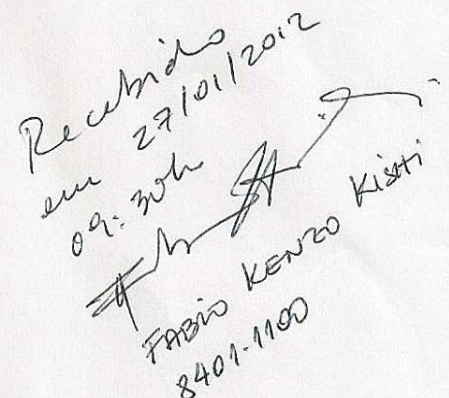 Recebido
em 27/01/2012
09:30h
FABIO KENZO
8401-1100